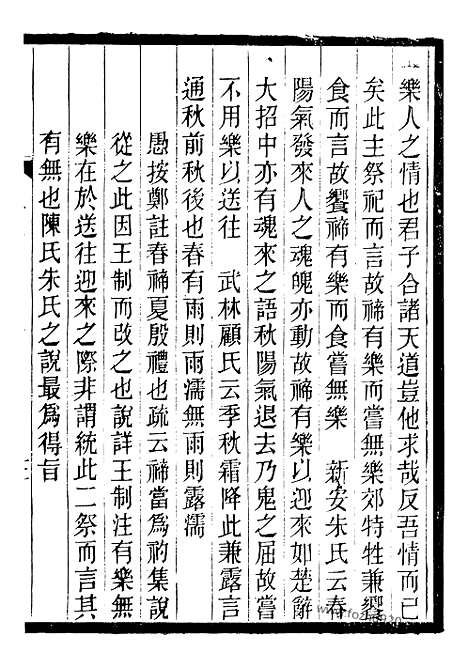 樂人之情也君子合諸天道豈他求哉反吾情而已
矣此主祭祀而言故禘有樂而嘗無樂郊特牲兼饗
食而言故饗禘有樂而食嘗無樂　新安朱氏云春
陽氣發來人之魂魄亦動故禘有樂以迎來如楚辭
大招中亦有魂來之語秋陽氣退去乃鬼之屈故嘗
不用樂以送往　武林顧氏云季秋霜降此兼露言
通秋前秋後也春有雨則雨濡無雨則露濡
愚按鄭註春禘夏殷禮也疏云禘當為礿集說
從之此因王制而改之也說詳王制注有樂無
樂在於送往迎來之際非謂統此二祭而言其
有無也陳氏朱氏之說最為得旨